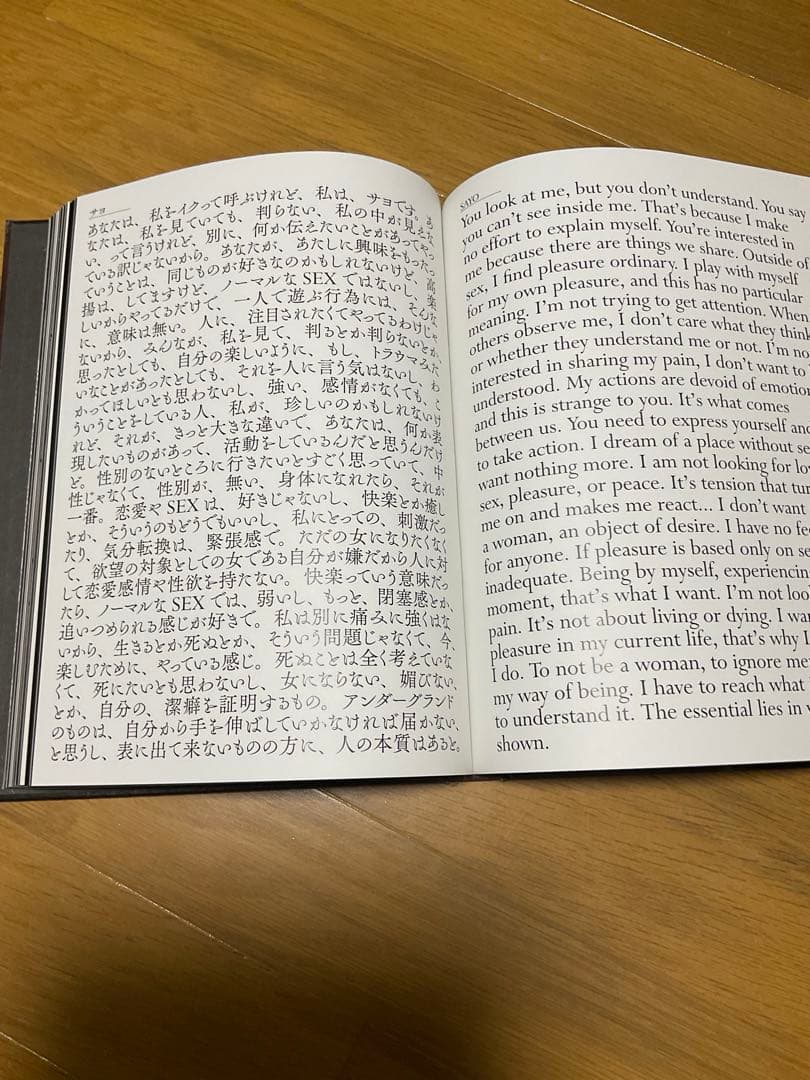 サヨ
あなたは、私をイクって呼ぶけれど、私は、サヨです。あ
なたは、私を見ていても、判らない、私の中が見えな
い、って言うけれど、別に、何か伝えたいことがあってやっ
ている訳じゃないから。あなたが、あたしに興味をもったっ
ていうことは、同じものが好きなのかもしれないけど、高
揚は、してますけど、ノーマルな SEX ではないし、楽
しいからやってるだけで、一人で遊ぶ行為には、そんな
に、意味は無い。人に、注目されたくてやってるわけじゃ
ないから、みんなが、私を見て、判るとか判らないとか、
思ったとしても、自分の楽しいように、もし、トラウマみた
いなことがあったとしても、それを人に言う気はないし、わ
かってほしいとも思わないし、強い、感情がなくても、こ
ういうことをしている人、私が、珍しいのかもしれないけ
れど、それが、きっと大きな違いで、あなたは、何か表
現したいものがあって、活動をしているんだと思うんだけ
ど。性別のないところに行きたいとすごく思っていて、中
性じゃなくて、性別が、無い、身体になれたら、それが
一番。恋愛や SEX は、好きじゃないし、快楽とか癒し
とか、そういうのもどうでもいいし、私にとっての、刺激だっ
たり、気分転換は、緊張感で。ただの女になりたくなく
て、欲望の対象としての女である自分が嫌だから人に対
して恋愛感情や性欲を持たない。快楽っていう意味だっ
たら、ノーマルな SEX では、弱いし、もっと、閉塞感とか、
追いつめられる感じが好きで。私は別に痛みに強くはな
いから、生きるとか死ぬとか、そういう問題じゃなくて、今、
楽しむために、やっている感じ。死ぬことは全く考えていな
くて、死にたいとも思わないし、女にならない、媚びない、
とか、自分の、潔癖を証明するもの。アンダーグランド
のものは、自分から手を伸ばしていかなければ届かない、
と思うし、表に出て来ないものの方に、人の本質はあると。
SAYO
You look at me, but you don't understand. You say
you can't see inside me. That's because I make
no effort to explain myself. You're interested in
me because there are things we share. Outside of
sex, I find pleasure ordinary. I play with myself
for my own pleasure, and this has no particular
meaning. I'm not trying to get attention. When
others observe me, I don't care what they think
or whether they understand me or not. I'm no
interested in sharing my pain, I don't want to
understood. My actions are devoid of emotion
and this is strange to you. It's what comes
between us. You need to express yourself and
to take action. I dream of a place without se
want nothing more. I am not looking for lov
sex, pleasure, or peace. It's tension that tur
me on and makes me react... I don't want
a woman, an object of desire. I have no fe
for anyone. If pleasure is based only on se
inadequate. Being by myself, experiencing
moment, that's what I want. I'm not look
pain. It's not about living or dying. I wan
pleasure in my current life, that's why I
I do. To not be a woman, to ignore me
my way of being. I have to reach what
to understand it. The essential lies in w
shown.